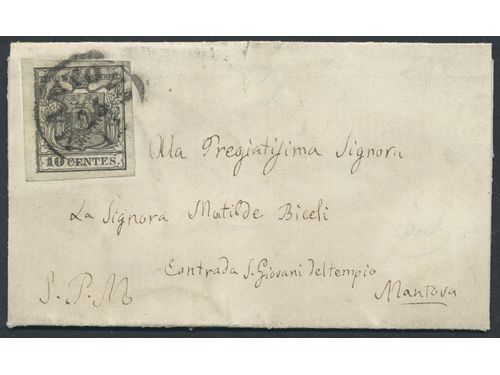 10 CENTES.
Alla Pregiatisima Signora
La Signora Matilde Biceli
Contrada S. Giovani del tempio
S. P. M
Mantova